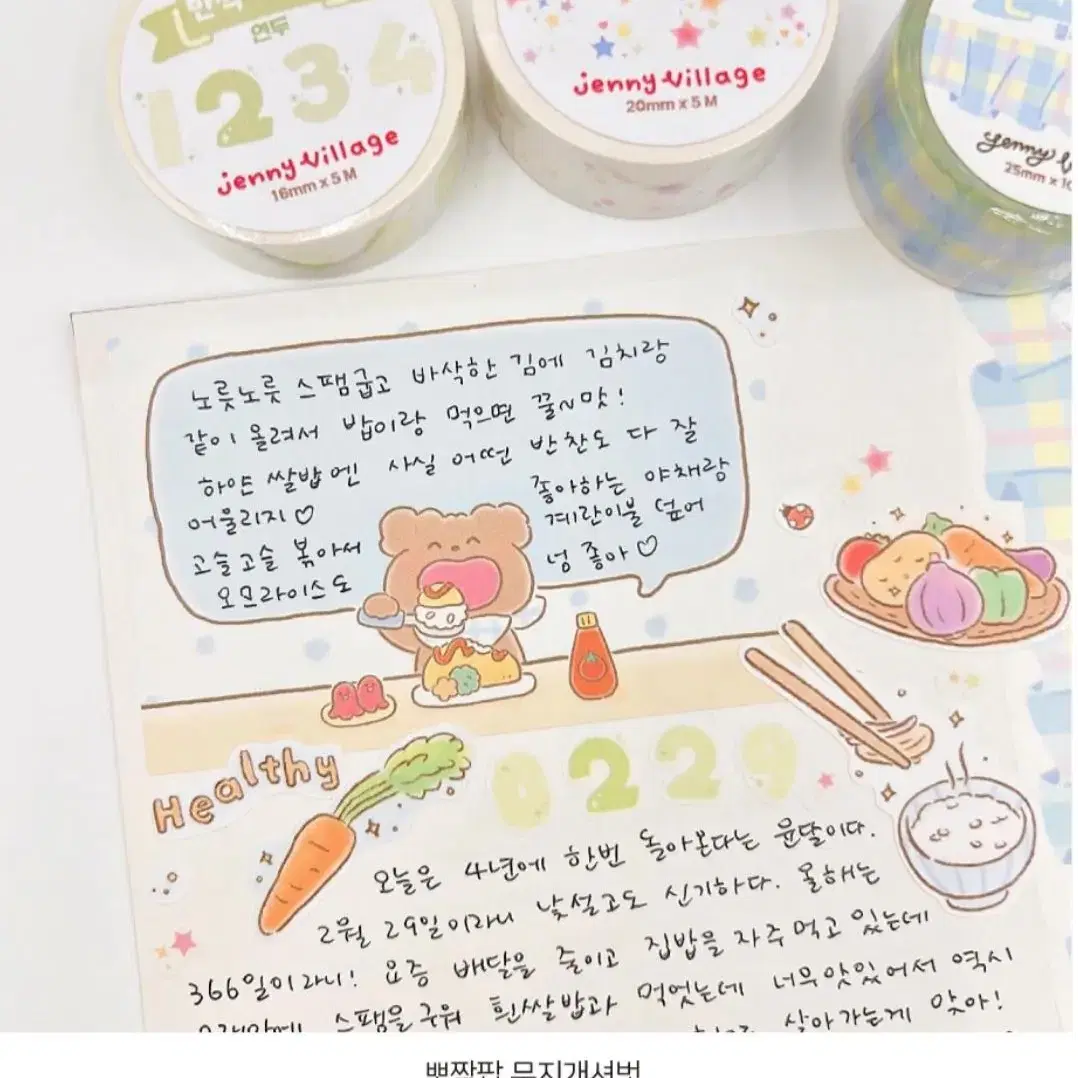 연두
1234
jenny Village
16mm x 5M
jenny Village
20mm x 5M
25mm x
노릇노릇 스팸굽고 바삭한 김에 김치랑
같이 올려서 밥이랑 먹으면 꿀~맛!
하얀 쌀밥엔 사실 어떤 반찬도 다 잘
어울리지♡
고슬고슬 볶아서
오므라이스도
좋아하는 야채랑
계란이불 덮어
넘 좋아♡
Healthy
0229
오늘은 4년에 한번 돌아온다는 윤달이다.
2월 29일이라니 낯설고도 신기하다. 올해는
366일이라니! 요즘 배달을 줄이고 집밥을 자주 먹고 있는데
스팸을 구워 흰쌀밥과 먹었는데 너무 맛있어서 역시
살아가는게 맞아!